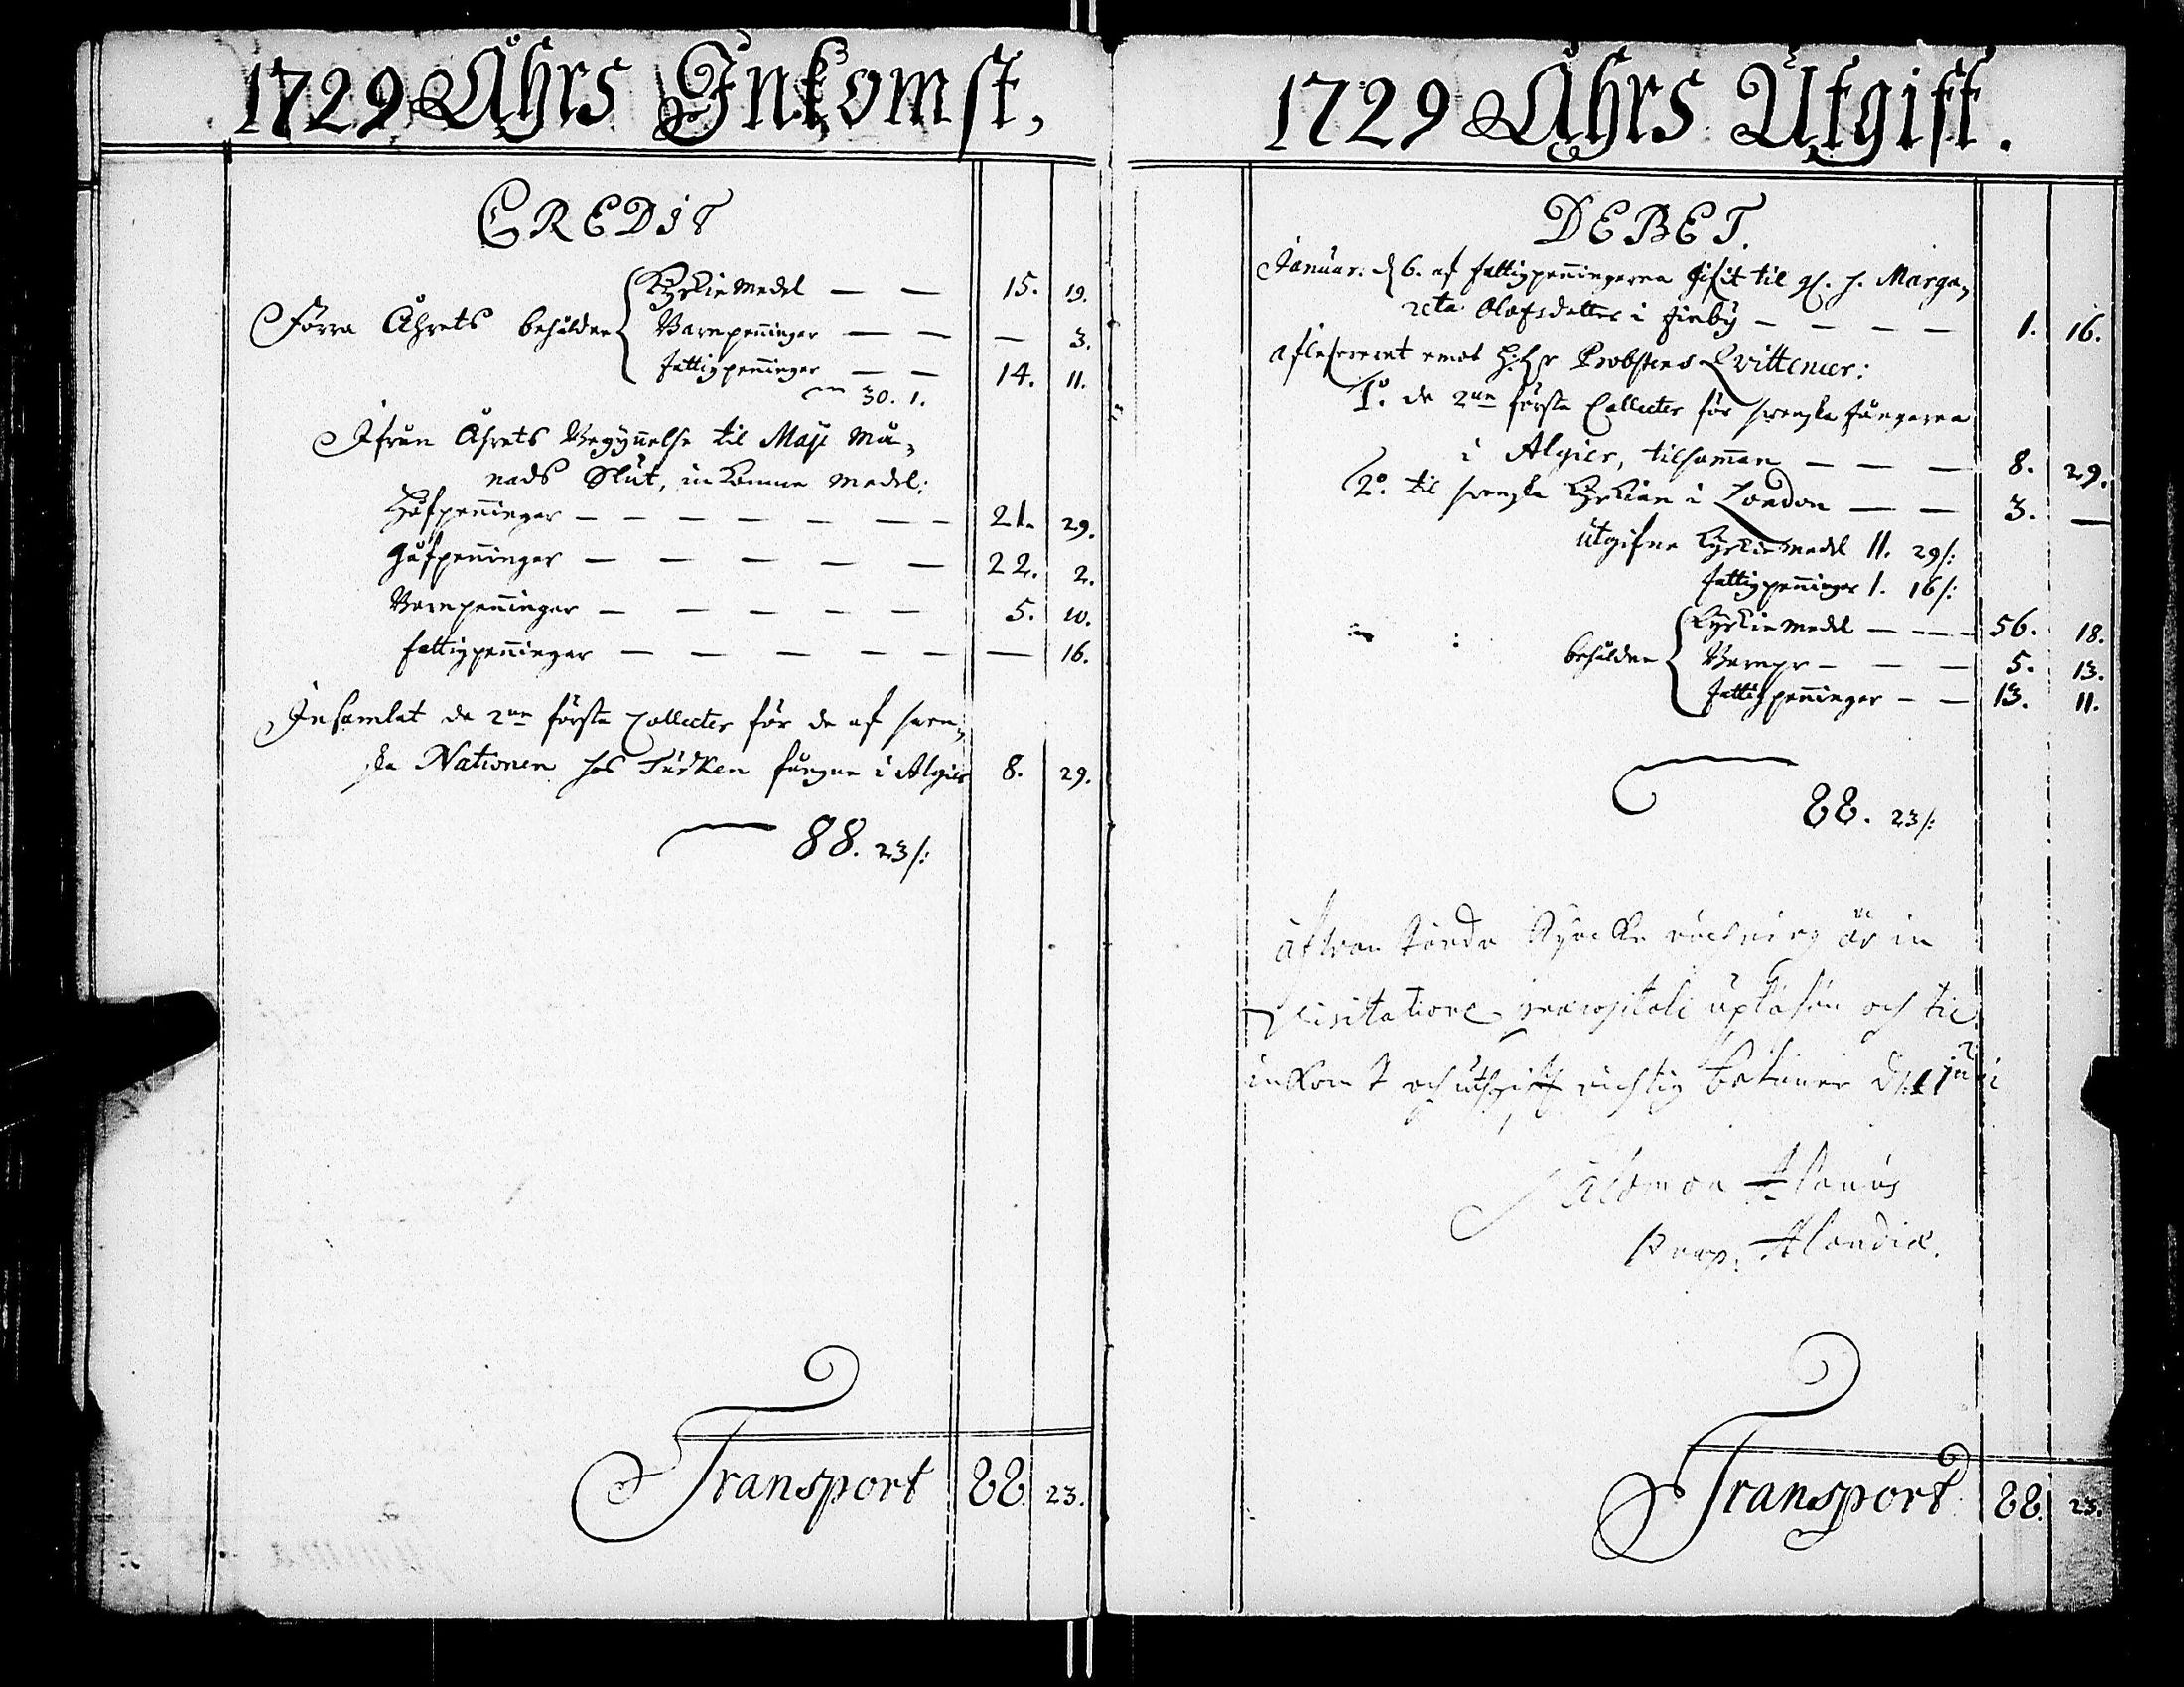 1729 Åhrs Inkomst,
CREDIT
Kyrkie medel — — 15. 19.
Förra Åhrets behåldne Barnpenningar — — — 3.
fattigpenningar — — 14. 11.
30. 1.
Ifrån Åhrets Begynnelse til Maji Må-
nads Slut, inkomne medel:
Håfpenningar — — — — — — 21. 29.
Gåfpenningar — — — — — 22. 2.
Barnpenningar — — — — — 5. 10.
fattigpenningar — — — — — — 16.
Insamlat de 2ne förste Collecter för de af Swen-
ska Nationen hos Turken fångne i Algier 8. 29.
88. 23/:
Transport 88. 23.
1729 Åhrs Utgift.
DEBET.
Januar: d 6. af fattigpenningarna gifit til h. Marga-
reta Olofsdotter i finby — — — — 1. 16.
aflefwererat emot H:Hr Probstens Qvittencer:
1o. de 2ne förste Collecter för swenske fångarna
i Algier, tilsamman — — — 8. 29.
2o. til swenske Kyrkian i London — — 3. —
utgifne Kyrkiemedel 11. 29/:
fattigpenningar 1. 16/:
Kyrkie medel — — — 56. 18.
behåldne Barnpr — — — 5. 13.
fattigpenningar — — 13. 11.
88. 23/:
är in
Visitatione och til
inkomst och utgift richtig
Salomon
Præp. Alandiæ.
Transport 88. 23.